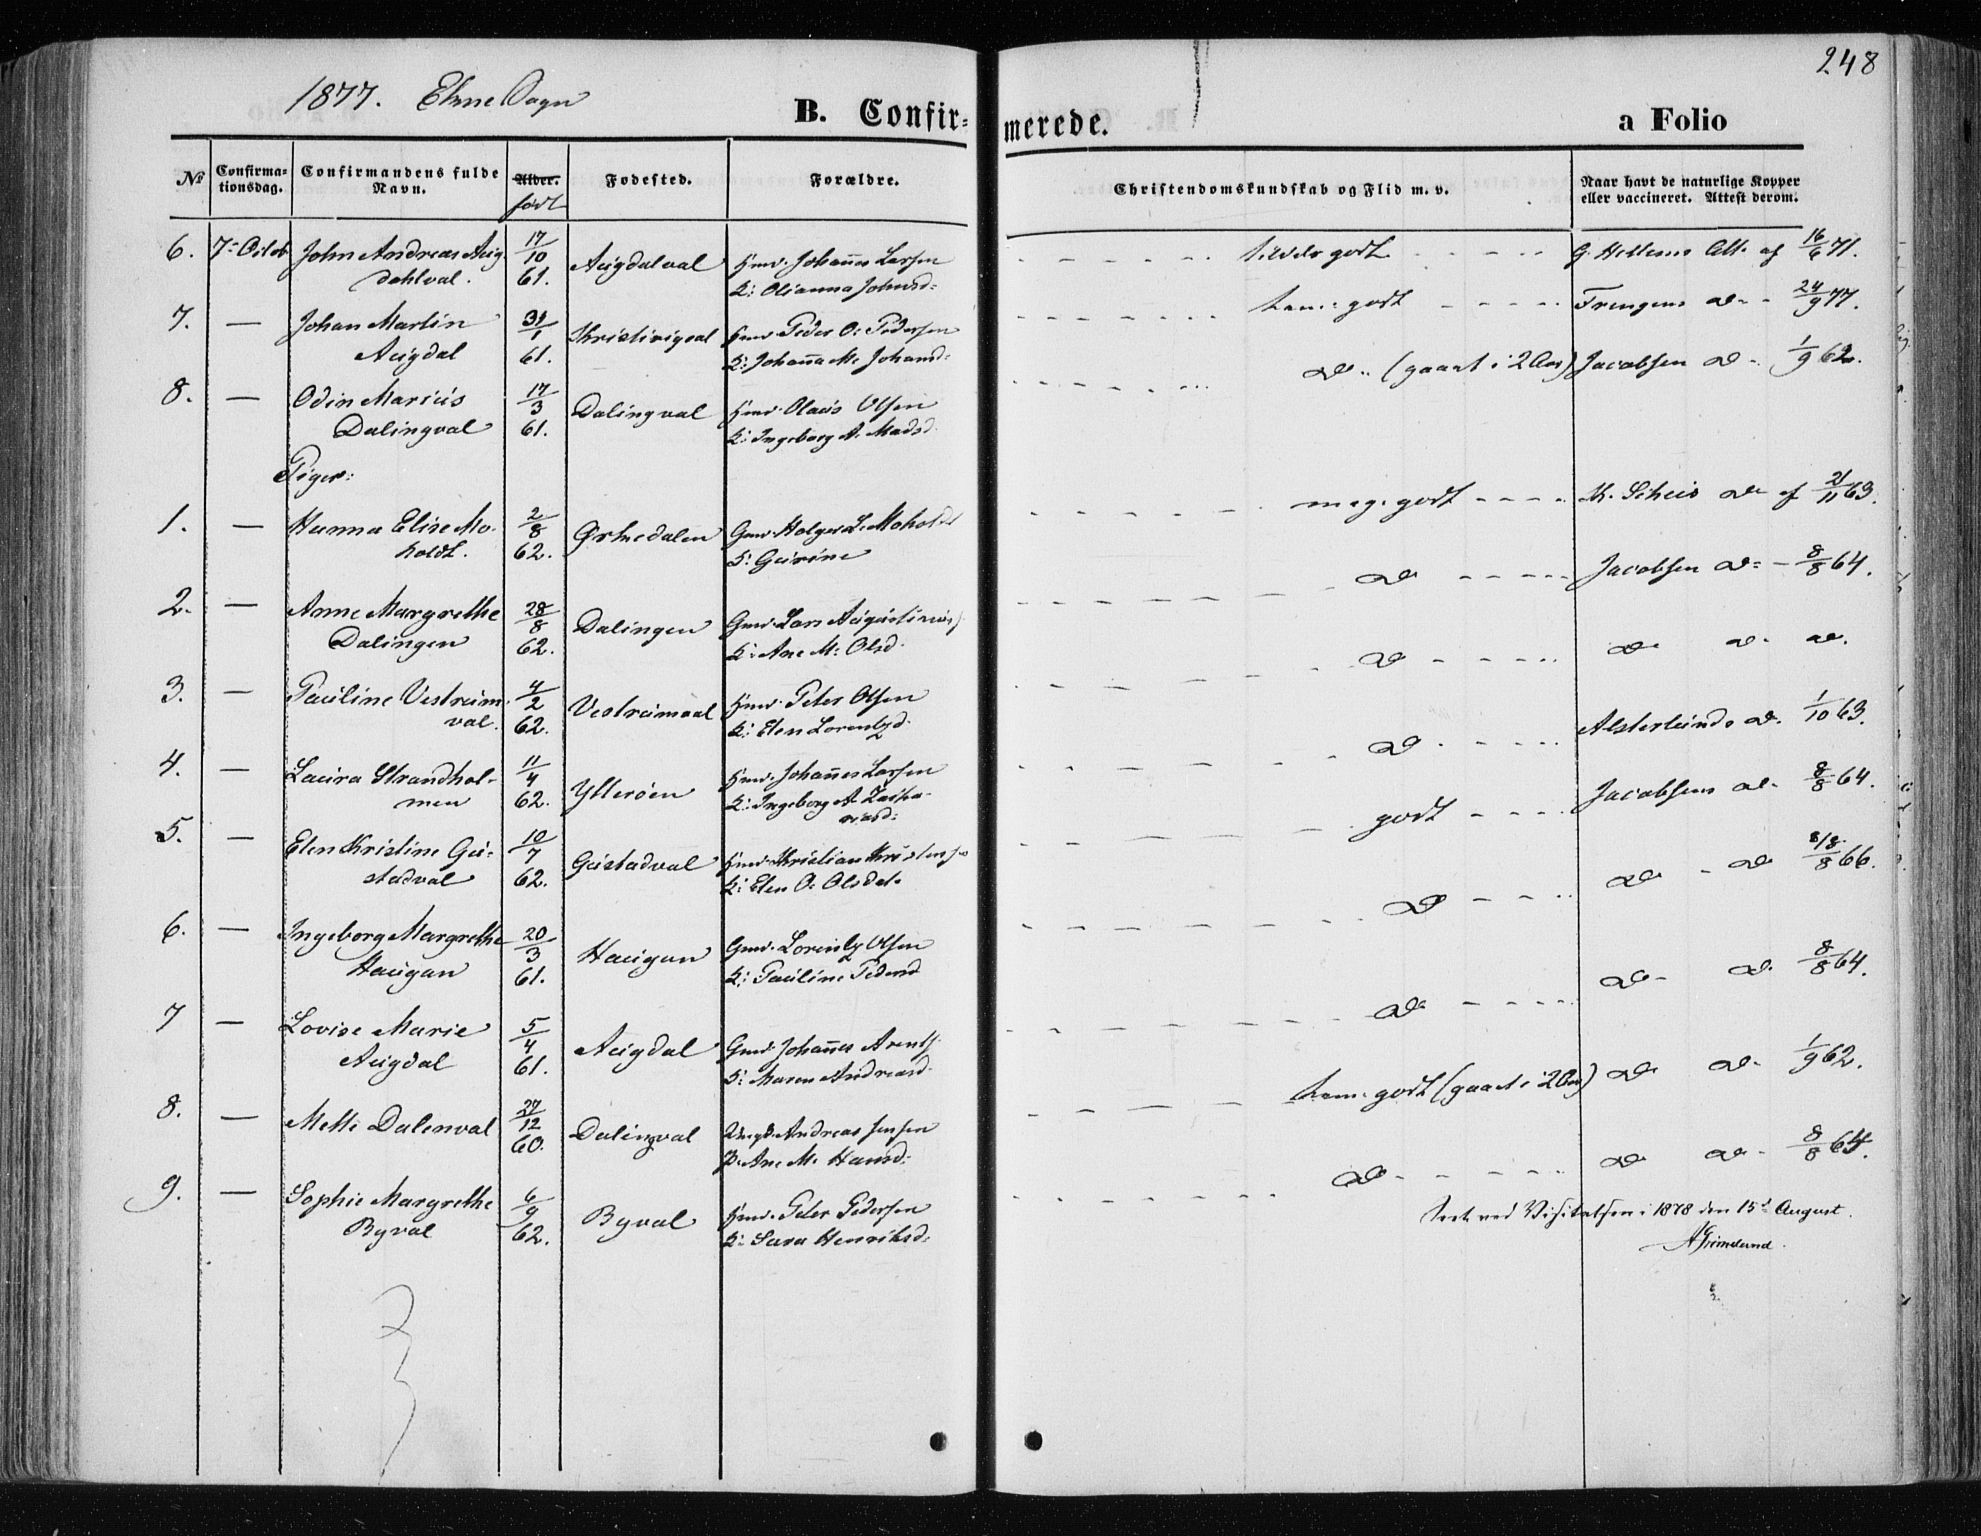 248
1877. Ekne Sogn
B. Confir-
merede.
a Folio
№
Confirma-
tionsdag.
Confirmandens fulde
Navn.
Alder.
født
Fødested.
Forældre.
Christendomskundskab og Flid m. v.
Naar havt de naturlige Kopper
eller vaccineret. Attest derom.
6. 7- Octob John Andreas Aug 17/10 Augdalval Hmd. Johannes Larsen tildels godt G. Hellems Att. af 16/6 71.
dahlval. 61. K: Olianna Johnsd:
7. — Johan Martin 31/1 Kristivigval Hmd Peder O: Pedersen tem: godt Frengens do - 24/9 77.
Augdal 61. K: Johanna M. Johansd:
8. — Odin Marius 17/3 Dalingval Hmd. Olaus Olsen do. (gaaet i 2 Aar) Jacobsen do. 1/9 62.
Dalingval 61. K: Ingeborg A. Madsd.
Piger:
1. — Hanna Elise Mo- 2/8 Ørkedalen Gmd. Holger L. Moholdt meg. godt K. Scheis do af 21/11 63.
holdt. 62. K: Gurine
2. — Anne Margrethe 28/8 Dalingen Gmd. Lars Augustinus do Jacobsen do: - 8/8 64.
Dalingen 62. K: Ane M: Olsd.
3. — Pauline Vestrum 4/2 Vestrumval Hmd. Peter Olsen do do do. do.
val. 62. K: Elen Lorentzd.
4. — Laura Strandhol- 11/4 Ytterøen Hmd. Johannes Larsen do. Alsterlunds do. 1/10 63.
men 62. K: Ingeborg A. Zacha-
riasd:
5. — Elen Kristine Gu- 10/7 Gustadval Hmd. Kristian Kristens godt Jacobsens do. 8/8 64.
stadval 62. K: Elen O: Olsdat.
6. — Ingeborg Margrethe 20/3 Haugan Gmd. Lorentz Olsen do do - do 8/8 66.
Haugan 61. K: Pauline Pedersd
7 — Lovise Marie 5/4 Augdal Gmd. Johannes Arents. do do - do. 8/8 64.
Augdal 61. K: Maren Andreasd.
8. — Mette Dalenval 27/12 Dalingval Ungk. Andreas Jensen tem: godt (gaaet i 2 Aar) do do. 1/9 62.
60. P. Ane M. Hansd.
9. — Sophie Margrethe 6/9 Byval Hmd. Peter Pedersen do - do do - 8/8 64.
Byval 62. K: Sara Henriksd:
Seet ved Visitatsen i 1878 den 15d August.
A Grimelund.